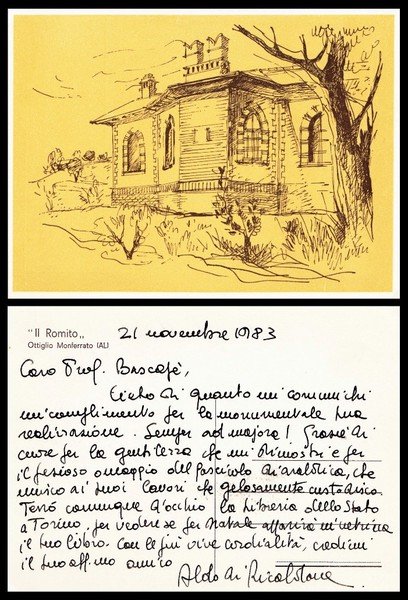 "Il Romito„
Ottiglio Monferrato (AL)
21 novembre 1983
Caro Prof. Bascapè,
Lieto di quanto mi comunichi
mi complimento per la monumentale tua
realizzazione. Sempre ad majora! Grazie di
cuore per la gentilezza che mi dimostri e per
il prezioso omaggio del fascicolo Araldica, che
unirò ai tuoi lavori che gelosamente custodisco.
Terrò comunque d'occhio la Libreria dello Stato
a Torino, per vedere se per Natale apparirà in vetrina
il tuo libro. Con le più vive cordialità, credimi
il tuo aff.mo amico
Aldo di Ricaldone